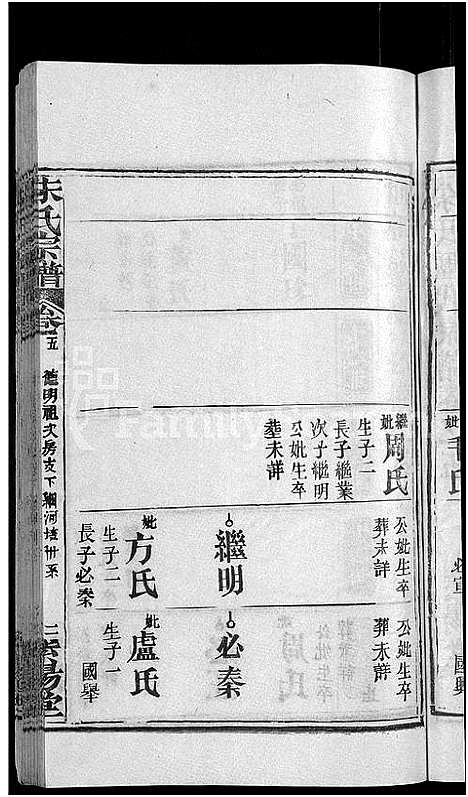 朱氏宗譜
卷
五
德明祖次房支下
紫陽堂
繼妣周氏
生子二
長子繼業
次子繼明
公妣生卒
塟未詳
公妣生卒
葬未詳
繼明
妣方氏
生子二
長子必秦
公妣生卒
葬未詳
必秦
妣盧氏
生子一
國舉
妣毛氏
必宣
國興
FamilySearch